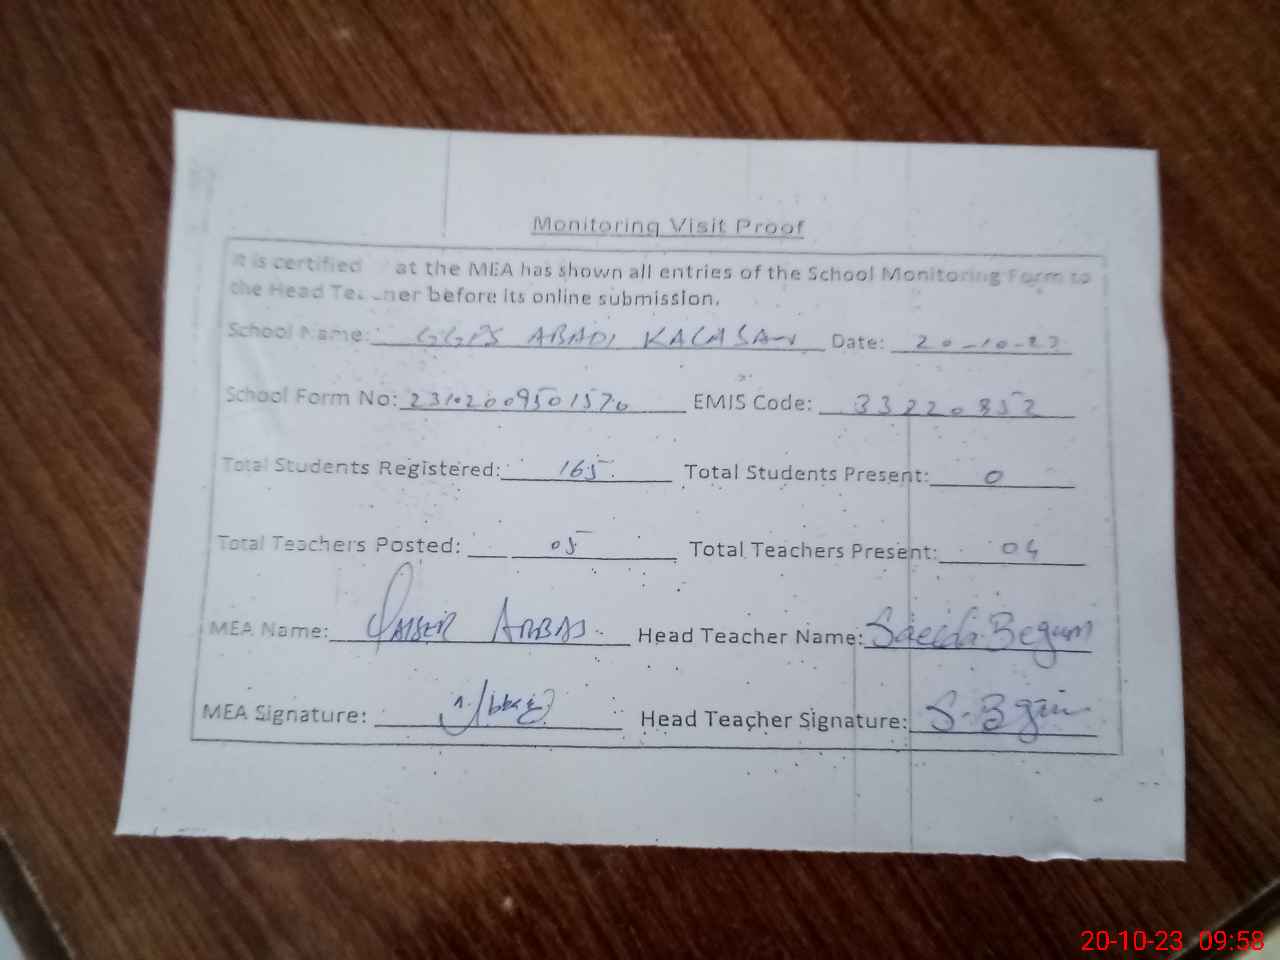 Monitoring Visit Proof
It is certified at the MEA has shown all entries of the School Monitoring Form to
the Head Teacher before its online submission.
School Name: GGPS ABADI KALASAN Date: 20-10-23
School Form No: 23102009501570 EMIS Code: 33220852
Total Students Registered: 165 Total Students Present: 0
Total Teachers Posted: 05 Total Teachers Present: 04
MEA Name: QAISER ABBAS Head Teacher Name: Saeeda Begum
MEA Signature: Head Teacher Signature: S. Begum
20-10-23 09:58